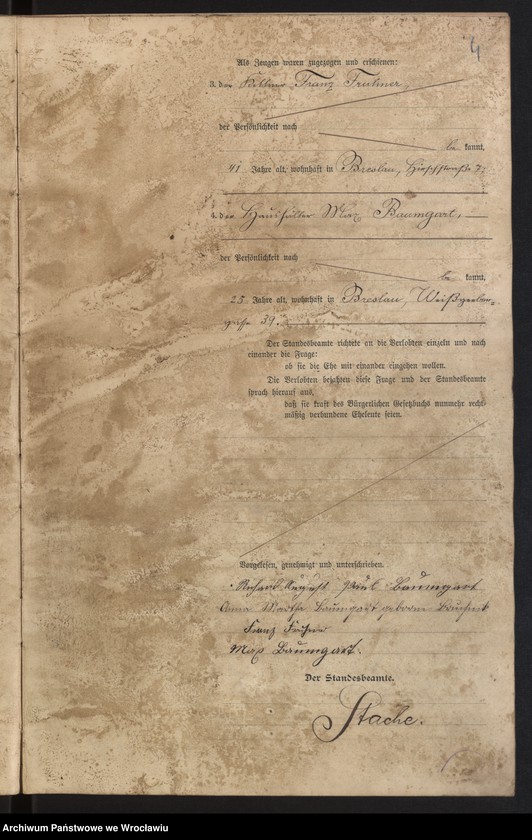 4
Als Zeugen waren zugezogen und erschienen:
3. der Franz
der Persönlichkeit nach
be kannt,
41 Jahre alt, wohnhaft in Breslau, Hirschstraße 7;
4. der Haushälter Max Baumgart,
der Persönlichkeit nach
be kannt,
25 Jahre alt, wohnhaft in Breslau, Weißgerber=
gasse 39.
Der Standesbeamte richtete an die Verlobten einzeln und nach
einander die Frage:
ob sie die Ehe mit einander eingehen wollen.
Die Verlobten bejahten diese Frage und der Standesbeamte
sprach hierauf aus,
daß sie kraft des Bürgerlichen Gesetzbuchs nunmehr recht-
mäßig verbundene Eheleute seien.
Vorgelesen, genehmigt und unterschrieben.
Richard August Paul Baumgart
Anna Martha Baumgart geborene
Franz
Max Baumgart.
Der Standesbeamte.
Stache.
Archiwum Państwowe we Wrocławiu